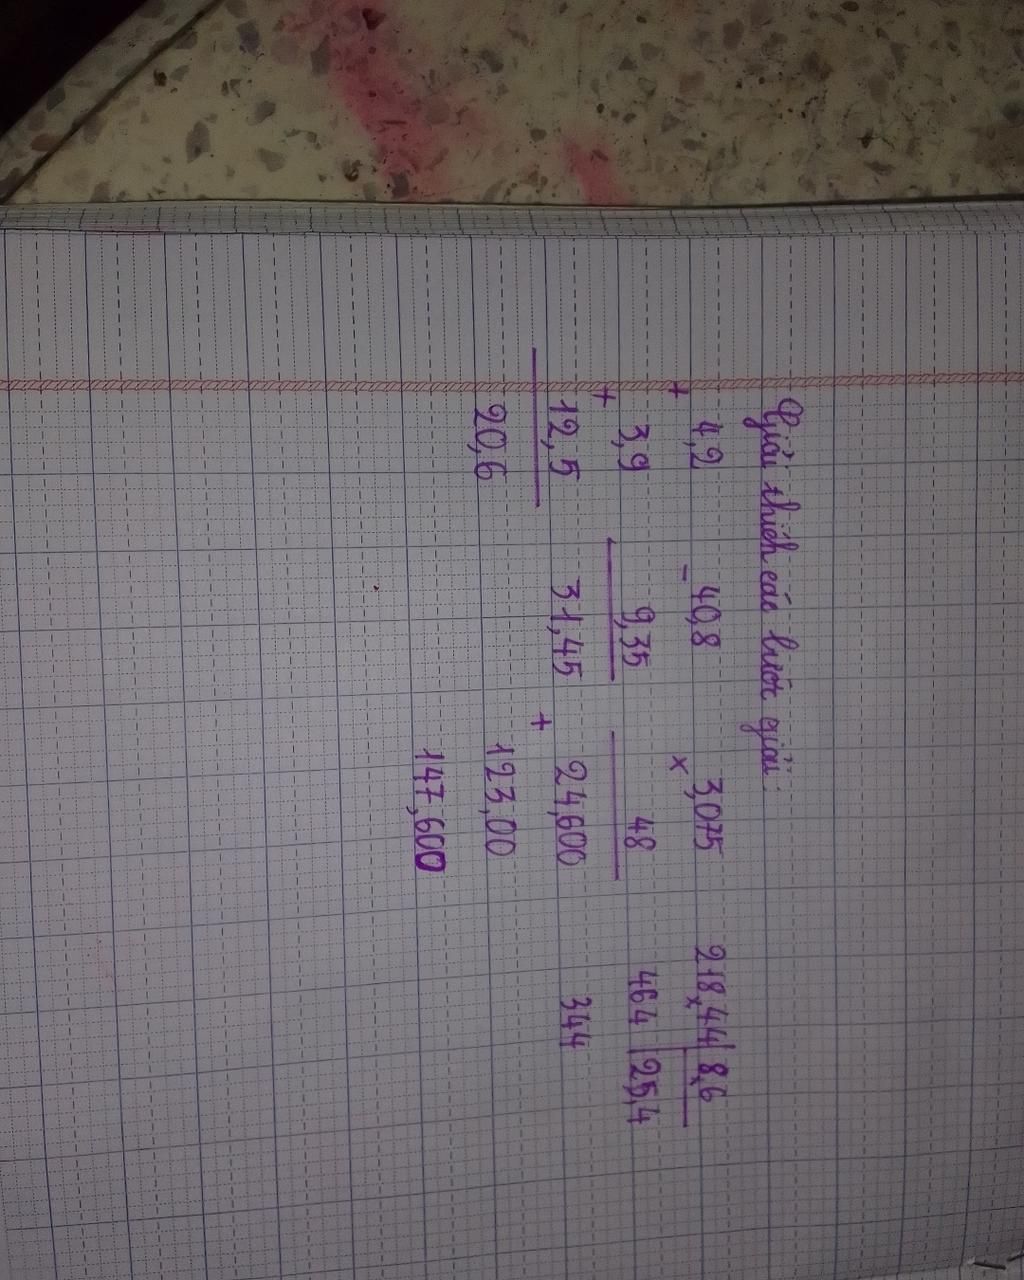 Giải thích các bước giải:
+ 4,2 - 40,8 x 3,075 218,44 8,6
+ 3,9 9,35 48 464 25,4
12,5 31,45 + 24,600 344
20,6 123,00
147,600